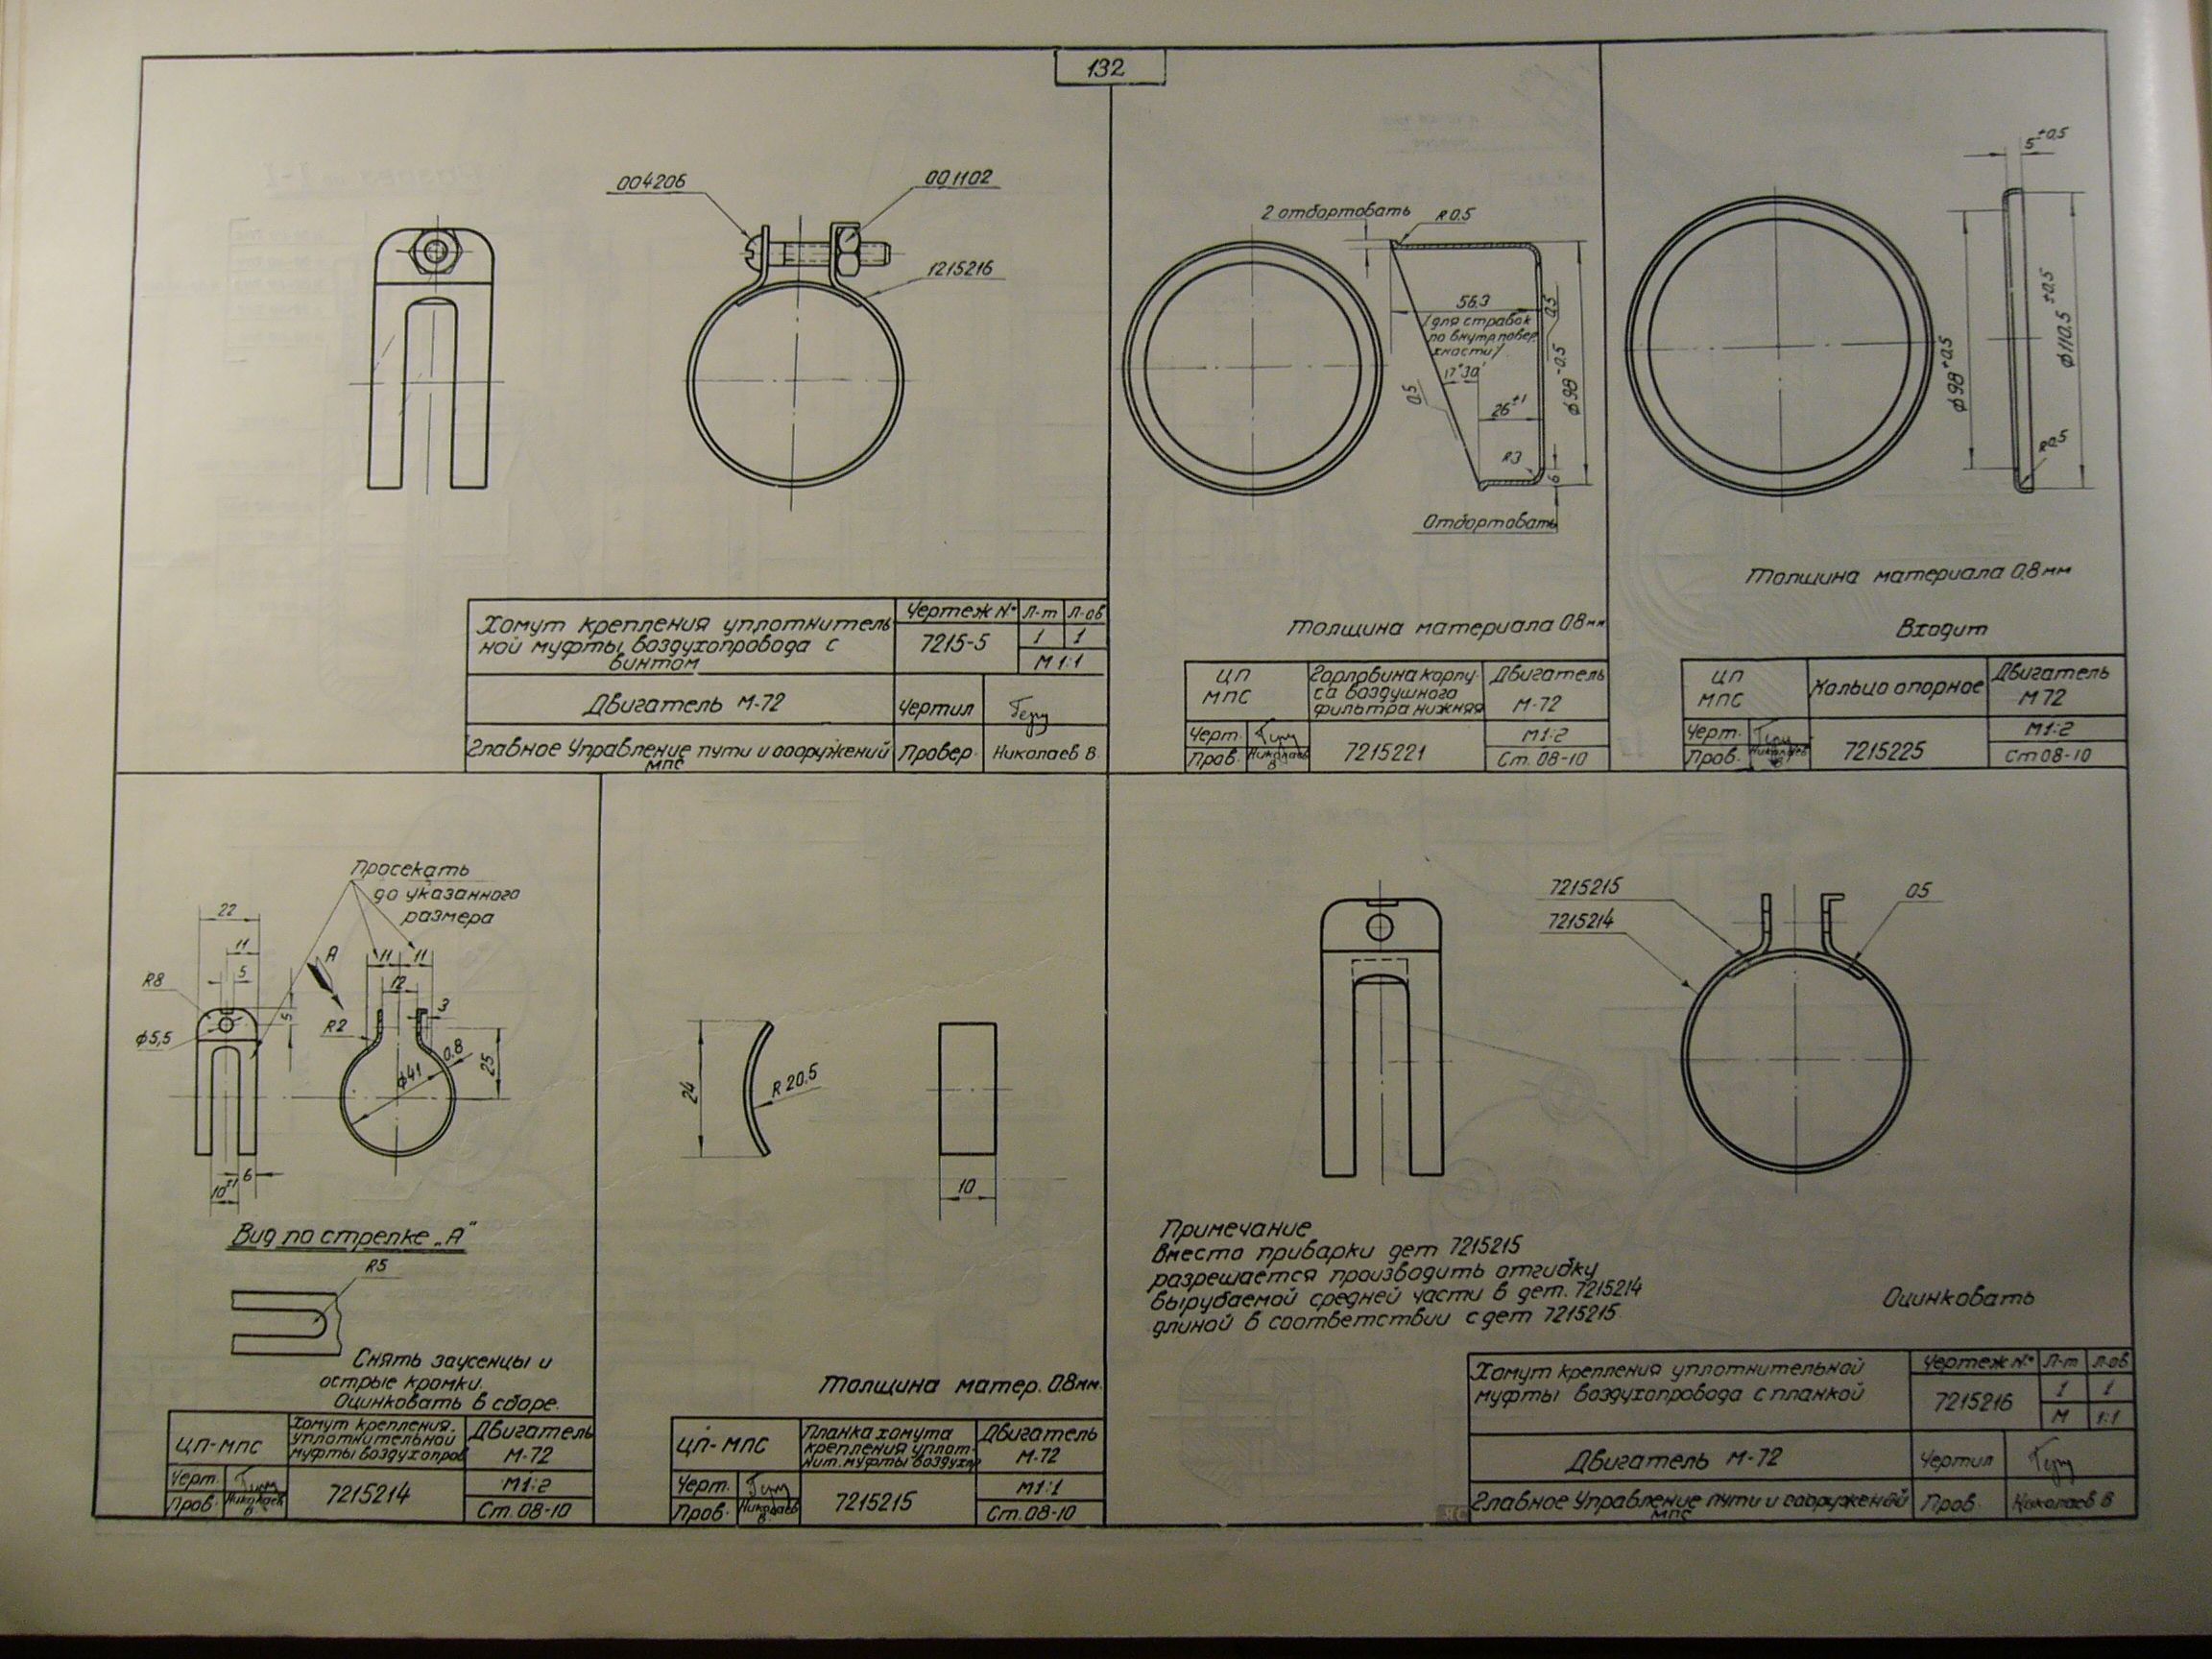 132
004206
001102
1215216
Хомут крепления уплотнитель
ной муфты воздухопровода с
винтом
Чертеж №
Л-т
Л-ов
7215-5
1
1
М 1:1
Двигатель М-72
Чертил
Главное Управление пути и сооружений
МПС
Провер.
Николаев В.
2 отбортовать
R 0.5
56.3
/для справок
по внутр.повер
хности/
17°30'
0.5
26±1
0.5
ф98-0.5
R3
6
Отбортовать
Толщина материала 0.8мм
ЦП
МПС
Горловина корпу-
са воздушного
фильтра нижняя
Двигатель
М-72
Черт.
М1:2
Пров.
Николаев
В
7215221
Ст. 08-10
5±0.5
ф98±0.5
ф110.5±0.5
R0.5
Толщина материала 0.8мм
Входит
ЦП
МПС
Кольцо опорное
Двигатель
М72
Черт.
М1:2
Пров.
Николаев
В
7215225
Ст 08-10
Просекать
до указанного
размера
22
11
5
R8
ф5,5
5
А
11
11
12
3
R2
0.8
25
ф41
10±1
6
Вид по стрелке „А"
R5
Снять заусенцы и
острые кромки.
Оцинковать в сборе.
ЦП-МПС
Хомут крепления
уплотнительной
муфты воздухопров
Двигатель
М-72
Черт.
М1:2
Пров.
Николаев
В.
7215214
Ст. 08-10
24
R 20.5
10
Толщина матер. 0.8мм.
ЦП-МПС
Планка хомута
крепления уплот-
нит. муфты воздухпр
Двигатель
М-72
Черт.
М1:1
Пров.
Николаев
В
7215215
Ст. 08-10
7215215
7215214
05
Примечание
Вместо приварки дет 7215215
разрешается производить отгибку
вырубаемой средней части в дет. 7215214
длиной в соответствии с дет 7215215.
Оцинковать
Хомут крепления уплотнительной
муфты воздухопровода с планкой
Чертеж №
Л-т
Л-ов
7215216
1
1
М
1:1
Двигатель М-72
Чертил
Главное Управление пути и сооружений
МПС
Пров.
Николаев В